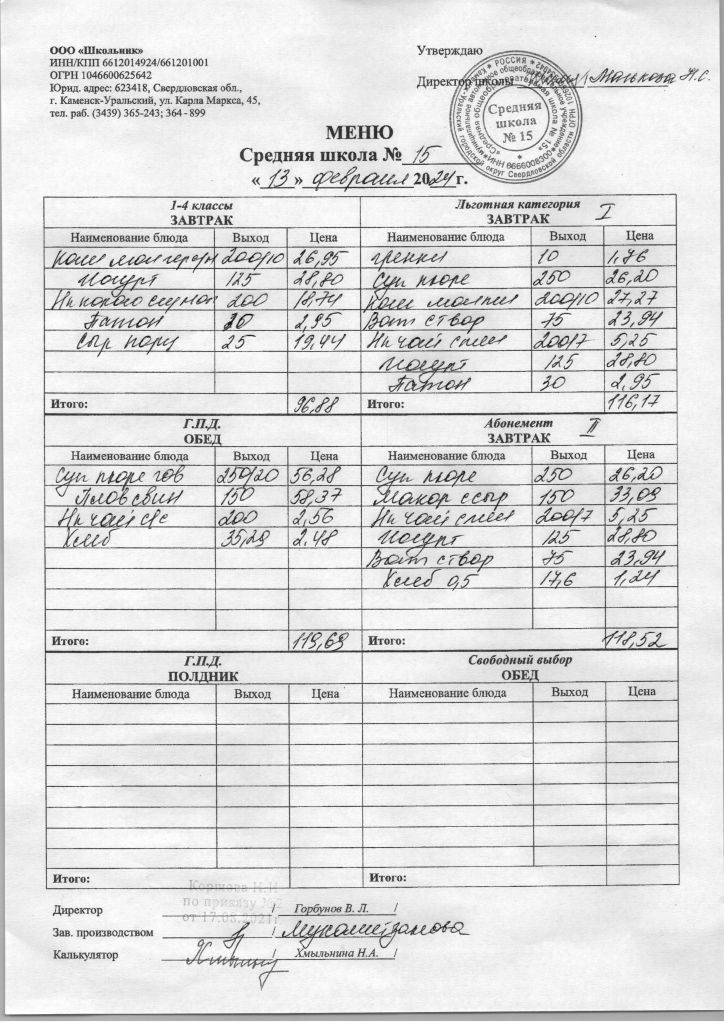 ООО «Школьник»
ИНН/КПП 6612014924/661201001
ОГРН 1046600625642
Юрид. адрес: 623418, Свердловская обл.,
г. Каменск-Уральский, ул. Карла Маркса, 45,
тел. раб. (3439) 365-243; 364 - 899
Утверждаю
Директор школы
Средняя
школа
№ 15
МЕНЮ
Средняя школа № 15
« 13 » февраля 2024г.
1-4 классы
ЗАВТРАК
Наименование блюда Выход Цена
Каша мол 200/10 26,95
Йогурт 125 28,80
200 18,74
Батон 30 2,95
Сыр порц 25 19,44
Итого: 96,88
Льготная категория I
ЗАВТРАК
Наименование блюда Выход Цена
гренки 10 1,76
Суп пюре 250 26,20
Каша 200/10 27,27
Ват с твор 75 23,94
Нп чай слим 200/7 5,25
Йогурт 125 28,80
Батон 30 2,95
Итого: 116,17
Г.П.Д.
ОБЕД
Наименование блюда Выход Цена
Суп пюре гов 250/20 56,28
Плов свин 150 58,37
Нп чай с/с 200 2,56
Хлеб 35,29 2,48
Итого: 119,69
Абонемент II
ЗАВТРАК
Наименование блюда Выход Цена
Суп пюре 250 26,20
Макар с сыр 150 33,09
Нп чай слим 200/7 5,25
Йогурт 125 28,80
Ват с твор 75 23,94
Хлеб 0,5 17,6 1,24
Итого: 118,52
Г.П.Д.
ПОЛДНИК
Наименование блюда Выход Цена
Итого:
Свободный выбор
ОБЕД
Наименование блюда Выход Цена
Итого:
по приказу №2
от 17.05.2021г
Директор / Горбунов В. Л. /
Зав. производством / Мухаметдамова /
Калькулятор / Хмыльнина Н.А. /